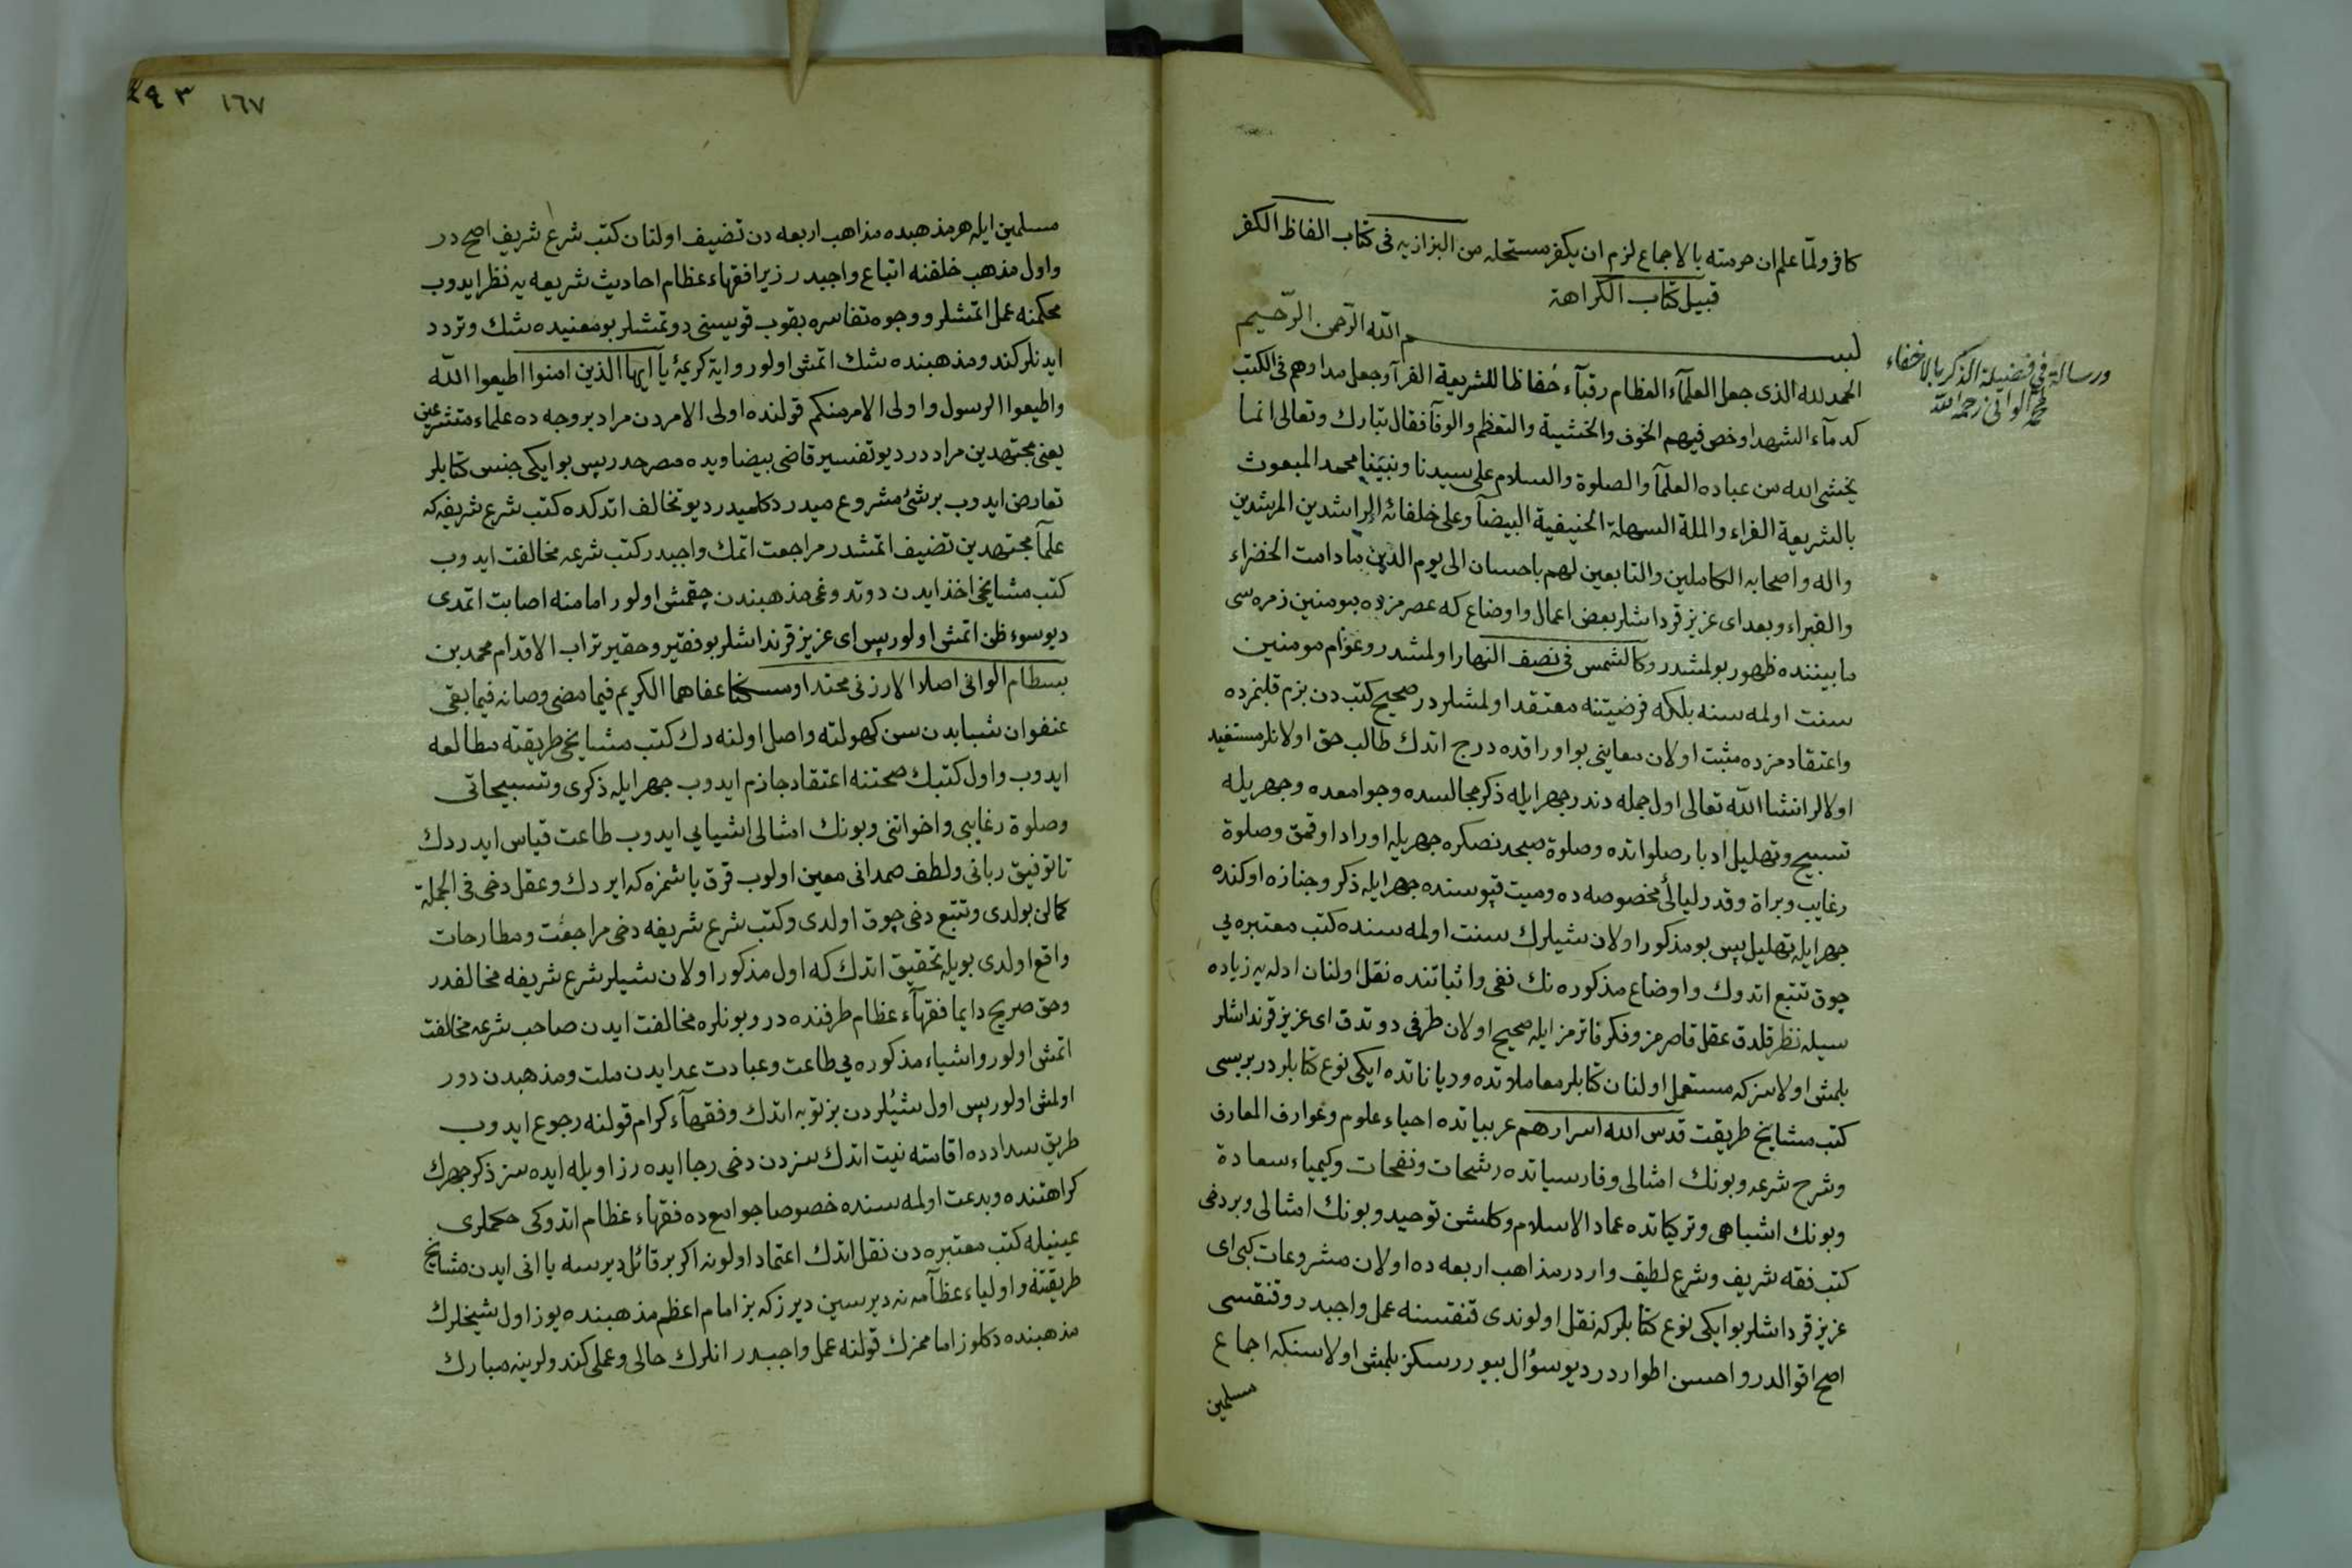 كافر ولمّا علم ان حرمته بالاجماع لزم ان يكفر مستحله من البزازيه فى كتاب الفاظ الكفر
قبيل كتاب الكراهة
بسم الله الرّحمن الرّحيم
ورسالة فى فضيلة الذكر بالاخفاء
لمحمد الوانى رحمه الله
الحمد لله الذى جعل العلمآء العظام رقبآء حُفاظا للشريعة الغرآ وجعل مدادهم فى الكتب
كدمآء الشهدا وخص فيهم الخوف والخشية والتعظم والوفآ فقال تبارك وتعالى انما
يخشى الله من عباده العلمآ والصلوة والسلام على سيدنا ونبيّنا محمد المبعوث
بالشريعة الغراء والملة السهلة الحنيفية البيضآ وعلى خلفائه الراشدين المرشدين
واله واصحابه الكاملين والتابعين لهم باحسان الى يوم الدين مادامت الخضراء
والغبراء وبعد اى عزيز قرداشلر بعض اعمال واوضاع كه عصرمزده مومنين زمره سى
مابيننده ظهور بولمشدر وكالشمس فى نصف النهار اولمشدر وعوّام مومنين
سنت اولمه سنه بلكه فرضيتنه معتقد اولمشلردر صحيح كتب دن بزم قلبمزده
واعتقادمزده مثبت اولان معاينى بو اوراقده درج اتدك طالب حق اولانلر مستفيد
اولالر انشا الله تعالى اول جمله دندر جهر ايله ذكر مجالسده وجوامعده وجهريله
تسبيح وتهليل ادبار صلواتده وصلوة صبحدنصكره جهريله اوراد اوقمق وصلوة
رغايب وبراة وقدر ليالئ مخصوصه ده وميت قپوسنده جهر ايله ذكر وجنازه اوكنده
جهر ايله تهليل پس بو مذكور اولان شيلرك سنت اولمه سنده كتب معتبره يى
چوق تتبع اتدوك واوضاع مذكوره نك نفى واثباتنده نقل اولنان ادله يه زياده
سيله نظر قلدق عقل قاصرمز وفكر فاترمز ايله صحيح اولان طرفى دوتدق اى عزيز قرنداشلر
بلمش اولاسزكه مستعمل اولنان كتابلر معاملاتده ودياناتده ايكى نوع كتابلردر بريسى
كتب مشايخ طريقت قدس الله اسرارهم عربياتده احياء علوم وعوارف المعارف
وشرح شرعه وبونك امثالى وفارسياتده رشحات ونفحات وكيمياء سعادة
وبونك اشباهى وتركياتده عماد الاسلام وكلشن توحيد وبونك امثالى وبردخى
كتب فقه شريف وشرع لطيف واردر مذاهب اربعه ده اولان مشروعات كبى اى
عزيز قرداشلر بو ايكى نوع كتابلركه نقل اولوندى قنقسنه عمل واجبدر وقنقسى
اصح اقوالدر واحسن اطواردر ديو سؤال بيوررسكز بلمش اولاسنكه اجماع
مسلمين
١٦٧
مسلمين ايله هر مذهبده مذاهب اربعه دن تضيف اولنان كتب شرع شريف اصح در
واول مذهب خلقنه اتباع واجبدر زيرا فقهاء عظام احاديث شريعه يه نظر ايدوب
محكمنه عمل اتمشلر ووجوه تفاسره بقوب قويسنى دوتمشلر بو معنيده شك وتردد
ايدنلر كندو مذهبنده شك اتمش اولور واية كريمۀ يآ ايها الذين امنوا اطيعوا الله
واطيعوا الرسول واولى الامر منكم قولنده اولى الامردن مراد بر وجهده علماء متشرعين
يعنى مجتهدين مراددر ديو تفسير قاضى بيضاويده مصرحدر پس بو ايكى جنس كتابلر
تعارض ايدوب بر شئ مشروع ميدر دكلميدر ديو تخالف اتدكده كتب شرع شريفه كه
علمآ مجتهدين تضيف اتمشدر مراجعت اتمك واجبدر كتب شرعه مخالفت ايدوب
كتب مشايخى اخذ ايدن دوتدوغى مذهبندن چقمش اولور امامنه اصابت اتمدى
ديو سوء ظن اتمش اولور پس اى عزيز قرنداشلر بو فقير وحقير تراب الاقدام محمد بن
بسطام الوانى اصلا الارزنى محتدا ومسكنا عفاهما الكريم فيما مضى وصانه فيما بقى
عنفوان شبابدن سن كهولته واصل اولنه دك كتب مشايخى طريقته مطالعه
ايدوب واول كتبك صحتنه اعتقاد جازم ايدوب جهر ايله ذكرى وتسبيحاتى
وصلوة رغايبى واخواتنى وبونك امثالى اشيايى ايدوب طاعت قياس ايدردك
تا توفيق ربانى ولطف صمدانى معين اولوب قرق ياشمزه كه ايردك وعقل دخى فى الجملة
كمالن بولدى وتتبع دخى چوق اولدى وكتب شرع شريفه دخى مراجعت ومطارحات
واقع اولدى بويله تحقيق اتدك كه اول مذكور اولان شيلر شرع شريفه مخالفدر
وحق صريح دايما فقهآء عظام طرفنده در وبونلره مخالفت ايدن صاحب شرعه مخالفت
اتمش اولور واشياء مذكوره يى طاعت وعبادت عد ايدن ملت ومذهبدن دور
اولمش اولور پس اول شئلردن بز توبه اتدك وفقهآء كرام قولنه رجوع ايدوب
طريق سدادده اقامته نيت اتدك سزدن دخى رجا ايده رز اويله ايده سز ذكر جهرك
كراهتنده وبدعت اولمه سنده خصوصا جوامعده فقهاء عظام اتدوكى حكملرى
عينيله كتب معتبره دن نقل اتدك اعتماد اولونه اكر بر قائل ديرسه يا انى ايدن مشايخ
طريقته واولياء عظآمه نه ديرسين ديرزكه بز امام اعظم مذهبنده يوز اول شيخلرك
مذهبنده دكلوز امامزك قولنه عمل واجبدر انلرك حالى وعملى كندولرينه مبارك